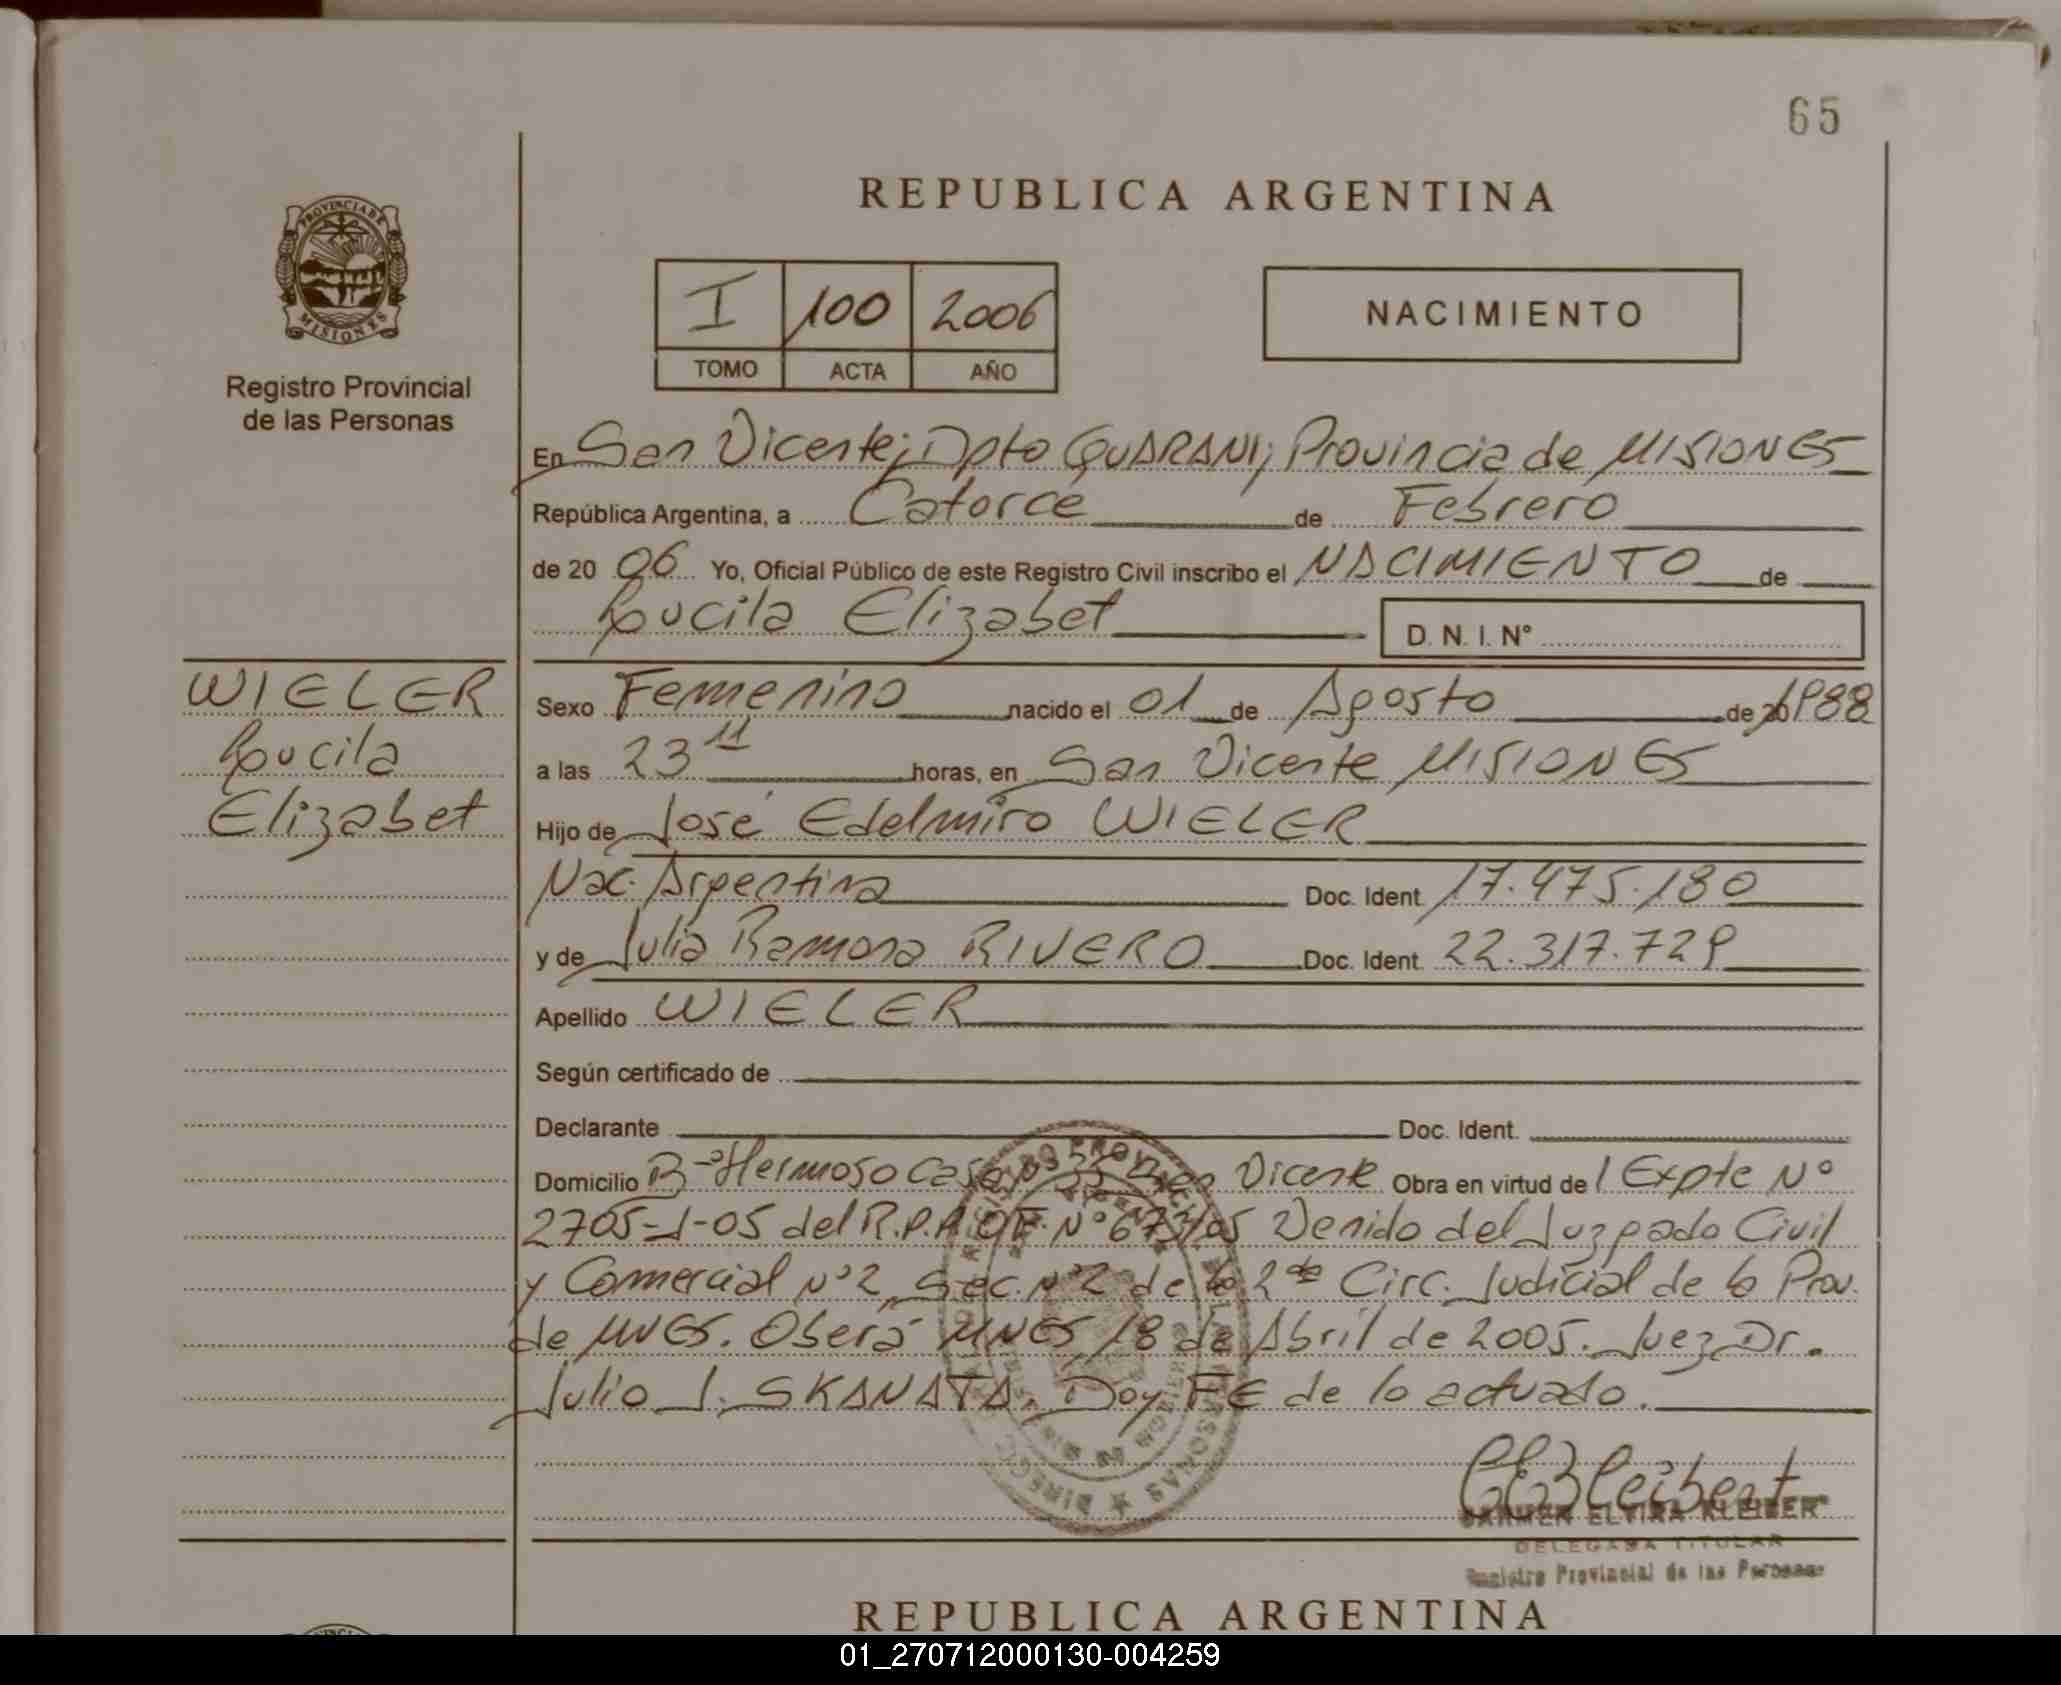 65
REPUBLICA ARGENTINA
PROVINCIA DE
MISIONES
Registro Provincial
de las Personas
I 100 2006
TOMO ACTA AÑO
NACIMIENTO
En San Vicente; Dpto GUARANI; Provincia de MISIONES
República Argentina, a Catorce de Febrero
de 20 06 Yo, Oficial Público de este Registro Civil inscribo el NACIMIENTO de
Lucila Elizabet
D. N. I. Nº
WIELER
Lucila
Elizabet
Sexo Femenino nacido el 01 de Agosto de 1988
a las 23 horas, en San Vicente MISIONES
Hijo de José Edelmiro WIELER
Nac. Argentina Doc. Ident. 17.475.180
y de Julia Ramona RIVERO Doc. Ident. 22.317.729
Apellido WIELER
Según certificado de
Declarante Doc. Ident.
Domicilio Bº Hermoso Casa Vicente Obra en virtud de Expte Nº
2705-J-05 del R.P.P. Nº 673/05 Venido del Juzgado Civil
y Comercial Nº2, Sec. Nº2 de la 2da Circ. Judicial de la Prov.
de MNES. Oberá MNES, 18 de Abril de 2005. Juez Dr.
Julio J. SKANATA. Doy FE de lo actuado.
CARMEN ELVIRA KLEIBER
DELEGADA TITULAR
Registro Provincial de las Personas
REPUBLICA ARGENTINA
01_270712000130-004259